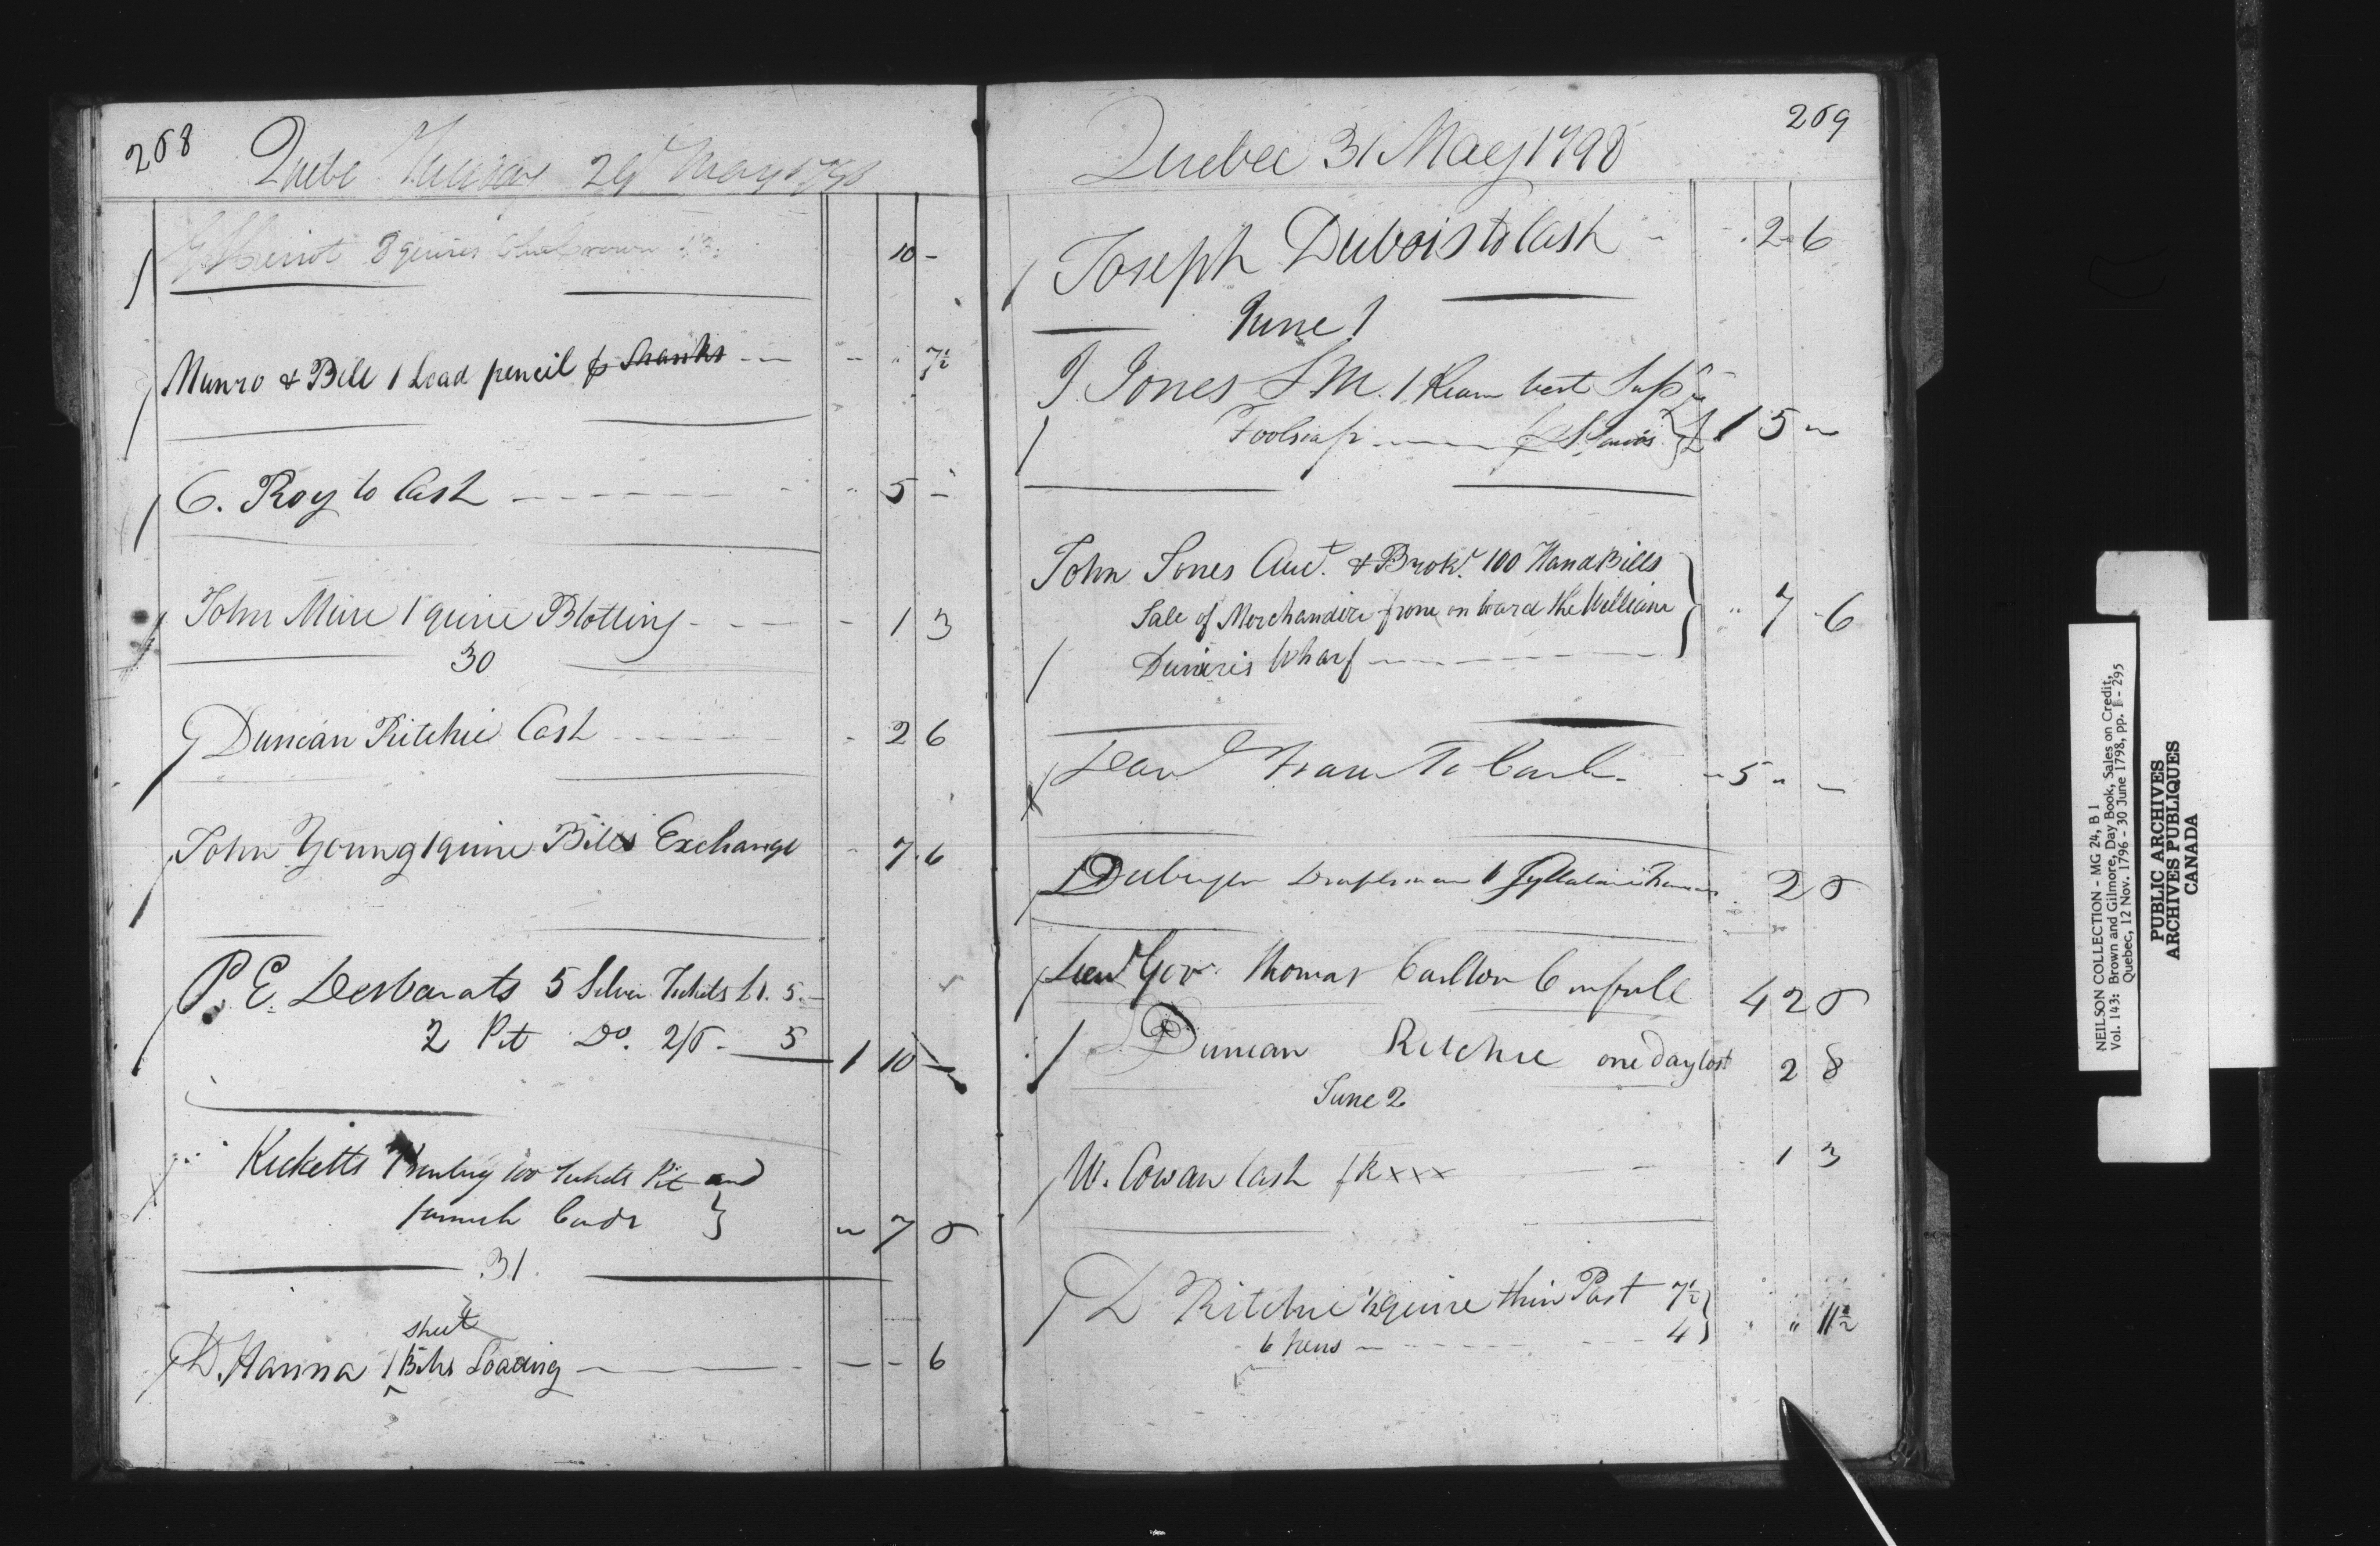 268
Quebe Tuesday 29 May 1798
G Heriot 8 quires blue Crown 1/3. 10 -
Munro & Bell 1 Lead pencil p Shanks - - - 7½
C. Roy to Cash - - - - - - 5 -
John Mure 1 quire Blotting - - - - 1 3
30
Duncan Ritchie Cash - - - - - 2 6
John Young 1 quire Bills Exchange - 7 6
P. E. Desbarats 5 Silver Tickets £1. 5. -
2 Pit Do. 2/6 - 5 1 10 -
Ricketts Printing 100 Tickets Pit and
furnish Cards } " 7 6
31
sheet
D. Hanna 1 ^ Bills Loading - - - 6
269
Quebec 31 May 1798
Joseph Dubois to Cash - - . 2 6
June 1
J Jones S M. 1 Ream best Supr.
Foolscap p } 1 5 "
John Jones Auct. & Brokr. 100 Hand Bills
Sale of Merchandize from on board the William } " 7 - 6
Wharf
To Cash - " 5 " -
1 2 6
Lieut Govr. Thomas Carlton in full 4 2 6
Duncan Ritchie one day lost 2 8
June 2
W. Cowan Cash xxx - - 1 3
D Ritchie ½ quire thin Post 7½ }
6 pens - - - - 4 } " " 11½
NEILSON COLLECTION - MG 24, B 1
Vol. 143: Brown and Gilmore, Day Book, Sales on Credit,
Quebec, 12 Nov. 1796 - 30 June 1798, pp. 1 - 295
PUBLIC ARCHIVES
ARCHIVES PUBLIQUES
CANADA